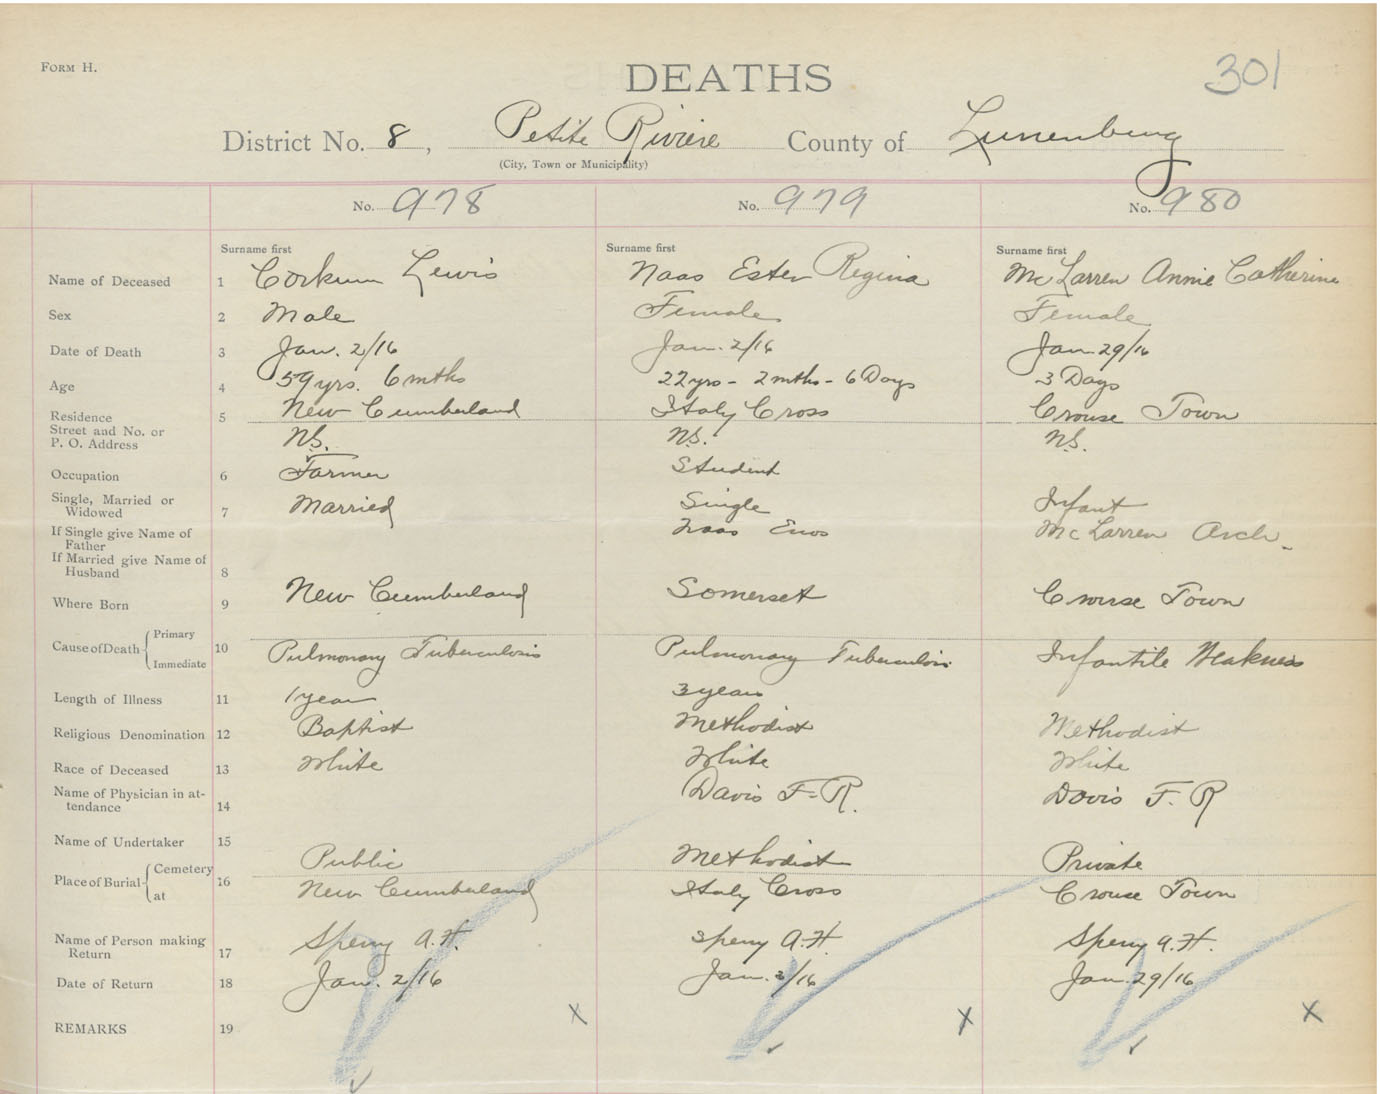 FORM H.
DEATHS
301
District No. 8, Petite Riviere County of Lunenburg
(City, Town or Municipality)
No. 978 No. 979 No. 980
Surname first Surname first Surname first
Name of Deceased 1 Corkum Lewis Naas Ester Regina McLarren Annie Catherine
Sex 2 Male Female Female
Date of Death 3 Jan. 2/16 Jan. 2/16 Jan 29/16
Age 4 59 yrs. 6 mths 22 yrs - 2 mths - 6 Days 3 Days
Residence 5 New Cumberland Italy Cross Crouse Town
Street and No. or
P. O. Address N.S. N.S. N.S.
Occupation 6 Farmer Student
Single, Married or
Widowed 7 Married Single Infant
If Single give Name of
Father Naas Enos McLarren Arch.
If Married give Name of
Husband 8
Where Born 9 New Cumberland Somerset Crouse Town
Cause of Death Primary
Immediate 10 Pulmonary Tuberculosis Pulmonary Tuberculosis Infantile Weakness
Length of Illness 11 1 year 3 years
Religious Denomination 12 Baptist Methodist Methodist
Race of Deceased 13 White White White
Name of Physician in at-
tendance 14 Davis F. R. Davis F. R
Name of Undertaker 15
Place of Burial Cemetery 16 Public Methodist Private
at New Cumberland Italy Cross Crouse Town
Name of Person making
Return 17 Sperry A. H. Sperry A. H Sperry A. H.
Date of Return 18 Jan. 2/16 Jan. /16 Jan 29/16
REMARKS 19 X X X